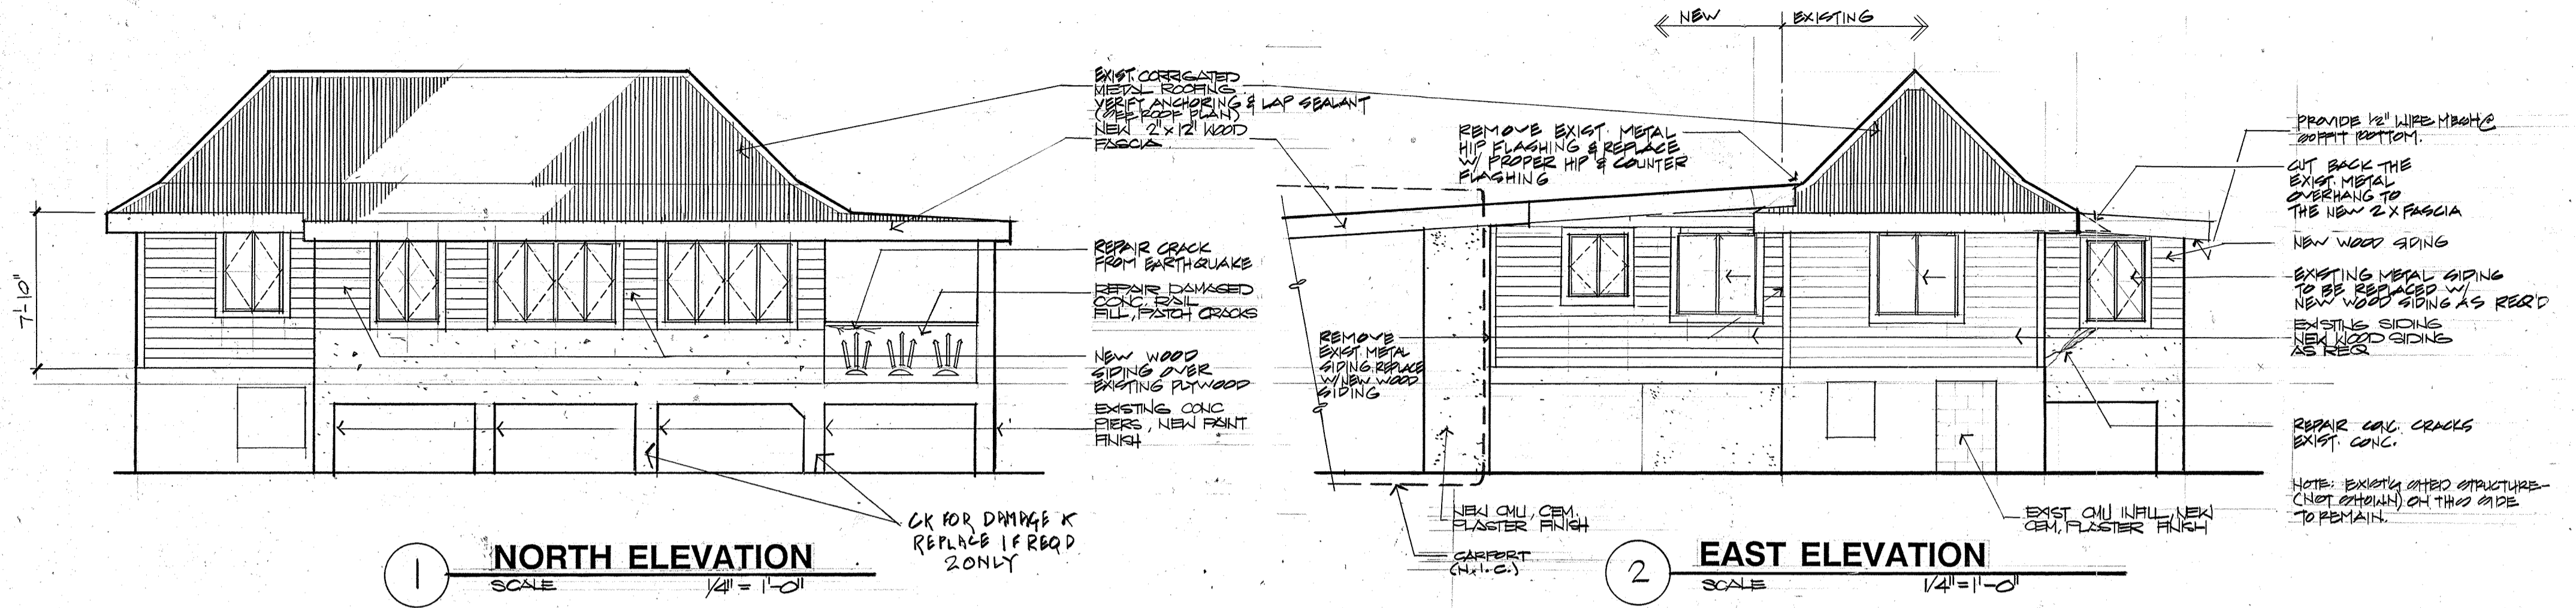 NEW EXISTING
EXIST. CORRIGATED
METAL ROOFING
VERIFY ANCHORING & LAP SEALANT
(SEE ROOF PLAN)
NEW 2"x12" WOOD
FASCIA
REPAIR CRACK
FROM EARTHQUAKE
REPAIR DAMAGED
CONC. RAIL
FILL, PATCH CRACKS
NEW WOOD
SIDING OVER
EXISTING PLYWOOD
EXISTING CONC
PIERS, NEW PAINT
FINISH
7'-10"
CK FOR DAMAGE &
REPLACE IF REQD
2 ONLY
1
NORTH ELEVATION
SCALE 1/4" = 1'-0"
REMOVE EXIST. METAL
HIP FLASHING & REPLACE
W/ PROPER HIP & COUNTER
FLASHING
REMOVE
EXIST. METAL
SIDING REPLACE
W/NEW WOOD
SIDING
PROVIDE 1/2" WIRE MESH @
SOFFIT BOTTOM.
CUT BACK THE
EXIST. METAL
OVERHANG TO
THE NEW 2X FASCIA
NEW WOOD SIDING
EXISTING METAL SIDING
TO BE REPLACED W/
NEW WOOD SIDING AS REQ'D
EXISTING SIDING
NEW WOOD SIDING
AS REQ
REPAIR CONC. CRACKS
EXIST. CONC.
NOTE: EXIST'G SHED STRUCTURE
(NOT SHOWN) ON THIS SIDE
TO REMAIN.
NEW CMU, CEM.
PLASTER FINISH
CARPORT
(N.I.C.)
EXIST CMU INFILL, NEW
CEM, PLASTER FINISH
2
EAST ELEVATION
SCALE 1/4"=1'-0"